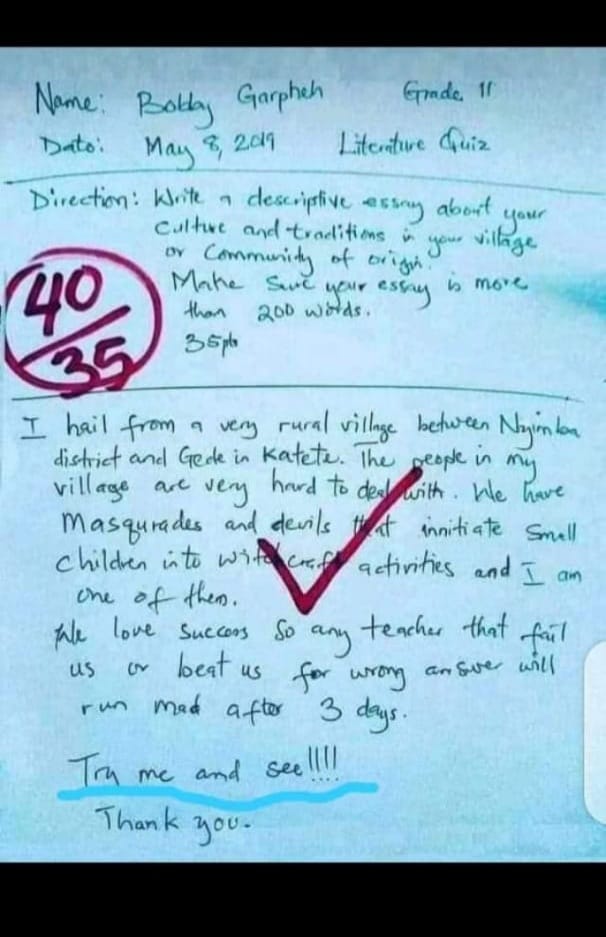 Name: Bobby Garpheh Grade 11
Date: May 8, 2019 Literature Quiz
Direction: Write a descriptive essay about your
Culture and traditions in your village
or Community of origin.
Make Sure your essay is more
than 200 words.
35pts
40/35
I hail from a very rural village between Nyimba
district and Gede in Katete. The people in my
village are very hard to deal with. We have
Masqurades and devils that innitiate Small
children into witchcraft activities and I am
one of them.
We love Success So any teacher that fail
us or beat us for wrong answer will
run mad after 3 days.
Try me and see!!!!
Thank you.